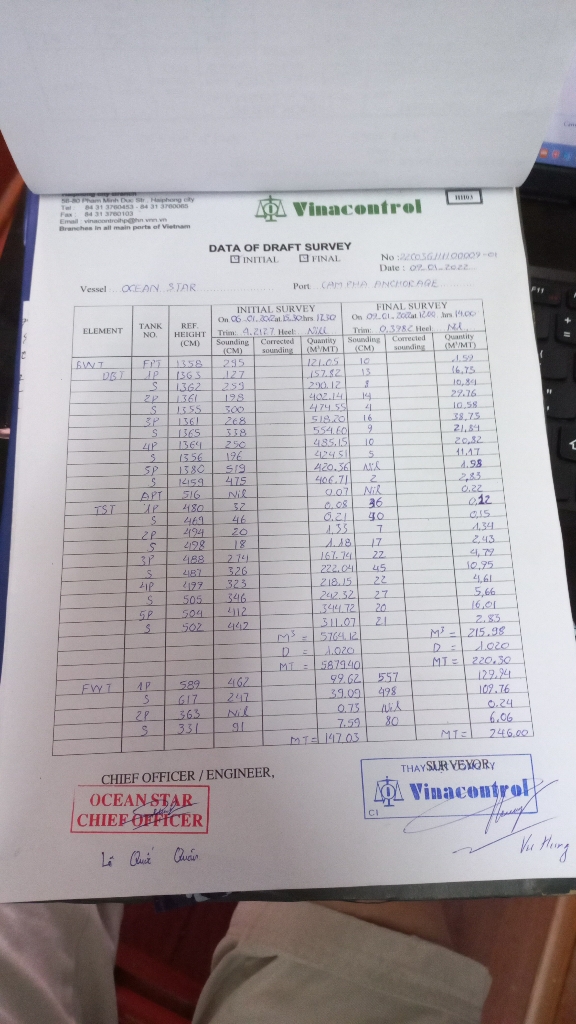 56-80 Pham Minh Duc Str., Haiphong city
Tel : 84 31 3760453 - 84 31 3760065
Fax : 84 31 3760103
Email : vinacontrolhp@hn.vnn.vn
Branches in all main ports of Vietnam
Vinacontrol
DATA OF DRAFT SURVEY
INITIAL FINAL
No :
Date : 09.01.2022
Vessel OCEAN STAR Port CAM PHA ANCHORAGE
ELEMENT TANK NO. REF. HEIGHT (CM) INITIAL SURVEY FINAL SURVEY
On 06.01.2022 at 15.30 hrs 17.30 On 09.01.2022 at 12.00 hrs 14.00
Trim: 4.2127 Heel: Nil Trim: 0.3982 Heel: Nil
Sounding (CM) Corrected sounding Quantity (M³/MT) Sounding (CM) Corrected sounding Quantity (M³/MT)
BWT FPT 1358 295 121.05 10 1.59
DBT 1P 1363 127 157.82 13 16.75
S 1362 259 290.12 8 10.84
2P 1361 198 402.14 14 29.76
S 1355 300 474.55 4 10.58
3P 1361 268 518.20 16 38.73
S 1365 338 554.60 9 21.84
4P 1364 250 485.15 10 20.82
S 1356 196 424.51 5 11.17
5P 1380 519 420.36 Nil 1.98
S 1459 475 406.71 2 2.83
APT 516 Nil 0.07 Nil 0.22
TST 1P 480 32 0.08 36 0.12
S 469 46 0.21 40 0.15
2P 494 20 1.33 7 1.34
S 498 18 1.18 17 2.43
3P 488 274 167.74 22 4.79
S 487 326 222.04 45 10.95
4P 497 323 218.15 22 4.61
S 505 346 242.32 27 5.66
5P 504 412 344.72 20 16.01
S 502 442 311.07 21 2.83
M³ = 5764.12 M³ = 215.98
D = 1.020 D = 1.020
MT = 5879.40 MT = 220.30
FWT 1P 589 462 99.62 557 129.94
S 617 247 39.09 498 109.76
2P 363 Nil 0.73 Nil 0.24
S 331 91 7.59 80 6.06
MT = 147.03 MT = 246.00
CHIEF OFFICER / ENGINEER, SURVEYOR,
OCEAN STAR
CHIEF OFFICER
Vinacontrol
C1
Vu Hung
F11